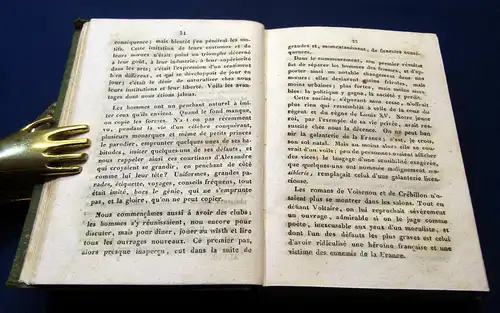 24
conséquence; mais bientôt j'en pénétrai les mo-
tifs. Cette imitation de leurs coutumes et de
leurs mœurs n'était point un triomphe décerné
à leur goût, à leur industrie, à leur supériorité
dans les arts; c'était l'expression d'un sentiment
bien différent, et qui se développait de jour en
jour; c'était le désir de naturaliser chez nous
leurs institutions et leur liberté. Voilà les avan-
tages dont nous étions jaloux.
Les hommes ont un penchant naturel à imi-
ter ceux qu'ils envient. Quand le fond manque,
on copie les formes. N'a-t-on pas récemment
vu, pendant la vie d'un célèbre conquérant,
plusieurs monarques et même de petits princes
le parodier, emprunter quelques unes de ses ha-
bitudes, imiter quelques-uns de ses défauts, et
nous rappeler ainsi ces courtisans d'Alexandre
qui croyaient se grandir, en penchant de côté
comme lui leur tête? Uniformes, grandes pa-
rades, étiquette, voyages, conseils fréquens, tout
était imité, hors le génie, qui ne s'emprunte
pas, et la gloire, qu'on ne peut copier.
Nous commençâmes aussi à avoir des clubs:
les hommes s'y réunissaient, non encore pour
discuter, mais pour dîner, jouer au wisth et lire
tous les ouvrages nouveaux. Ce premier pas,
alors presque inaperçu, eut dans la suite de
25
grandes et, momentanément, de funestes consé-
quences.
Dans le commencement, son premier résultat
fut de séparer les hommes des femmes, et d'ap-
porter ainsi un notable changement dans nos
mœurs: elles devinrent moins frivoles, mais
moins urbaines; plus fortes, mais moins aima-
bles: la politique y gagna, la société y perdit.
Cette société, s'épurant sans cesse, n'offrait
plus rien qui ressemblât à celle de la cour du
régent et du règne de Louis XV. Notre jeune
roi, par l'exemple de sa vie privée, avait rat-
taché chez nous la décence. On ne peut ban-
nir la galanterie de la France; c'est, je crois,
son sol natal. Mais alors au moins elle se cou-
vrait d'un voile: peu de personnes osaient afficher
des vices; le langage d'une sensibilité exagérée,
que quelques-uns nommaient malignement sen-
siblerie, remplaçait celui d'une galanterie licen-
cieuse.
Les romans de Voisenon et de Crébillon n'o-
saient plus se montrer dans les salons. Tout en
étudiant Voltaire, on lui reprochait sévèrement
un ouvrage, admirable si on le juge comme
poète, inexcusable aux yeux d'un moraliste, et
dont l'un des défauts les plus graves est celui
d'avoir ridiculisé une héroïne française et une
victime des ennemis de la France.